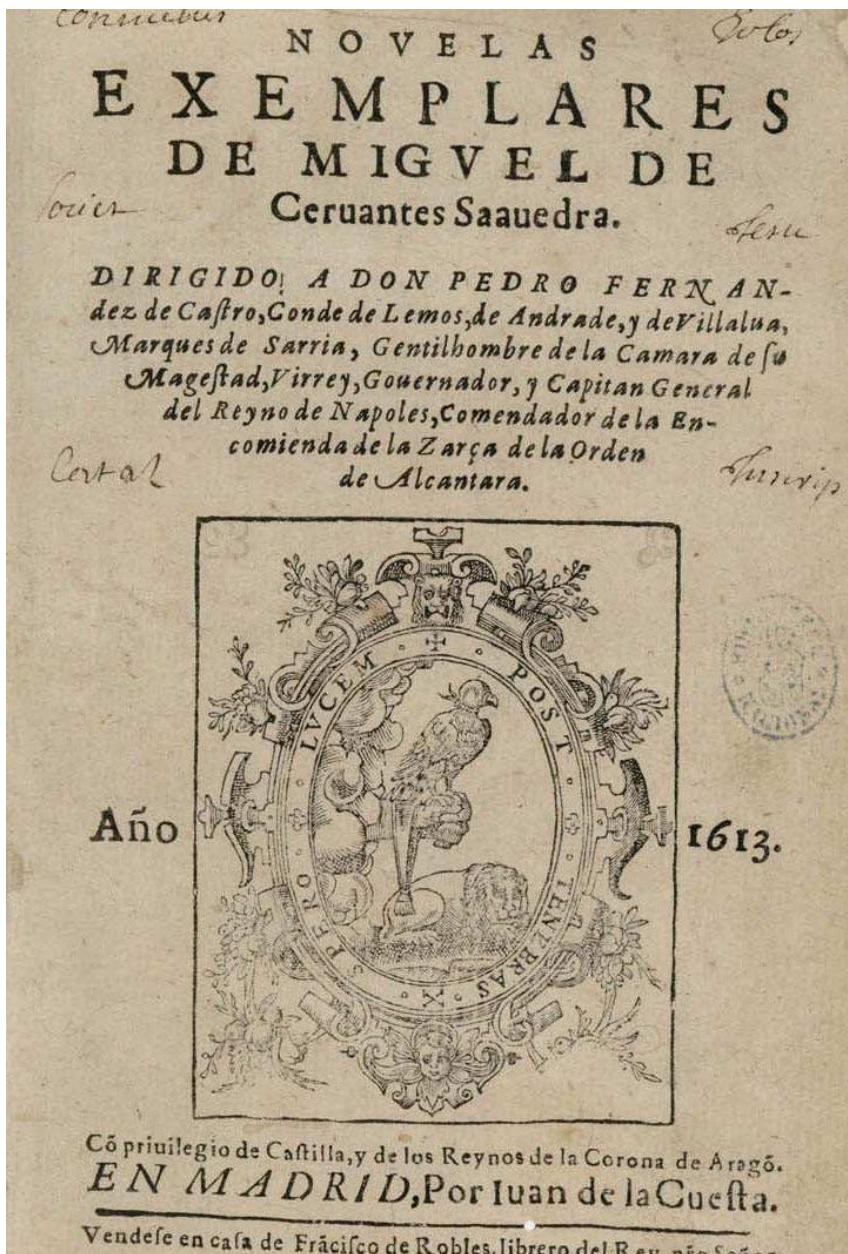 NOVELAS
EXEMPLARES
DE MIGVEL DE
Ceruantes Saauedra.
DIRIGIDO A DON PEDRO FERNAN-
dez de Caſtro, Conde de Lemos, de Andrade, y de Villalua,
Marques de Sarria, Gentilhombre de la Camara de ſu
Mageſtad, Virrey, Gouernador, y Capitan General
del Reyno de Napoles, Comendador de la En-
comienda de la Zarça de la Orden
de Alcantara.
POST TENEBRAS SPERO LVCEM
Año 1613.
Cõ priuilegio de Caſtilla, y de los Reynos de la Corona de Aragõ.
EN MADRID, Por Iuan de la Cueſta.
Vendeſe en caſa de Frãciſco de Robles, librero del Rey